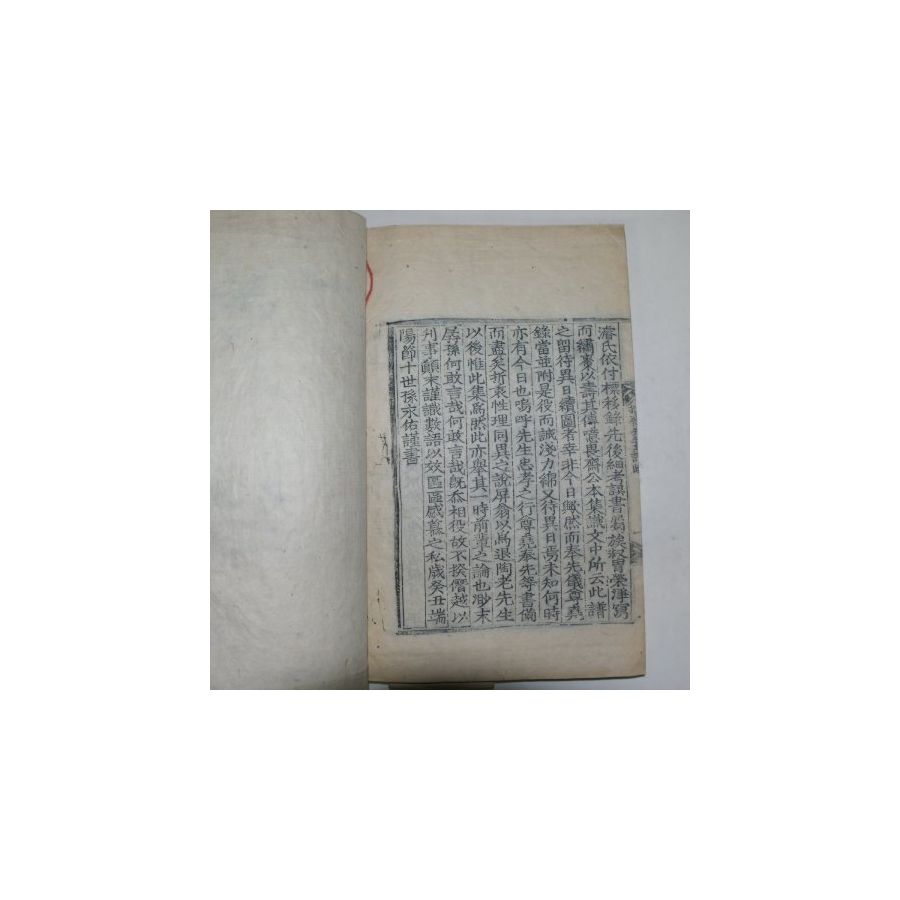 濬氏依付標移錄先後細考誤書屬族叔胄榮淨寫
而繡棗以壽其傳噫畏齋公本集識文中所云此譜
之留待異日續圖者幸非今日歟然而奉先儀尊堯
錄當並附是役而誠淺力綿又待異日焉未知何時
亦有今日也嗚呼先生忠孝之行尊堯奉先等書備
而盡矣折衷性理同異之說屏翁以爲退陶老先生
以後惟此集爲然此亦舉其一時前輩之論也渺末
孱孫何敢言哉何敢言哉旣忝相役故不揆僭越以
刋事顚末謹識數語以效區區感慕之私歲癸丑端
陽節十世孫永佑謹書